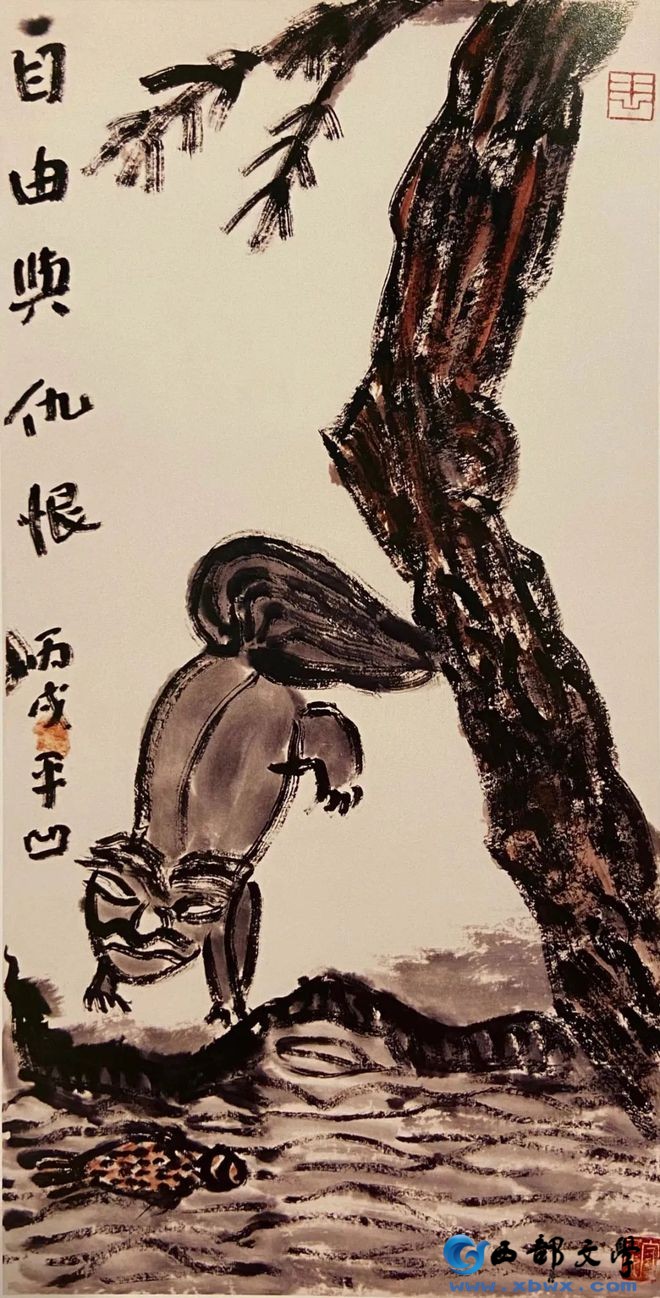 自由與仇恨 丙戌 平凹
西部文學
www.xbwx.com